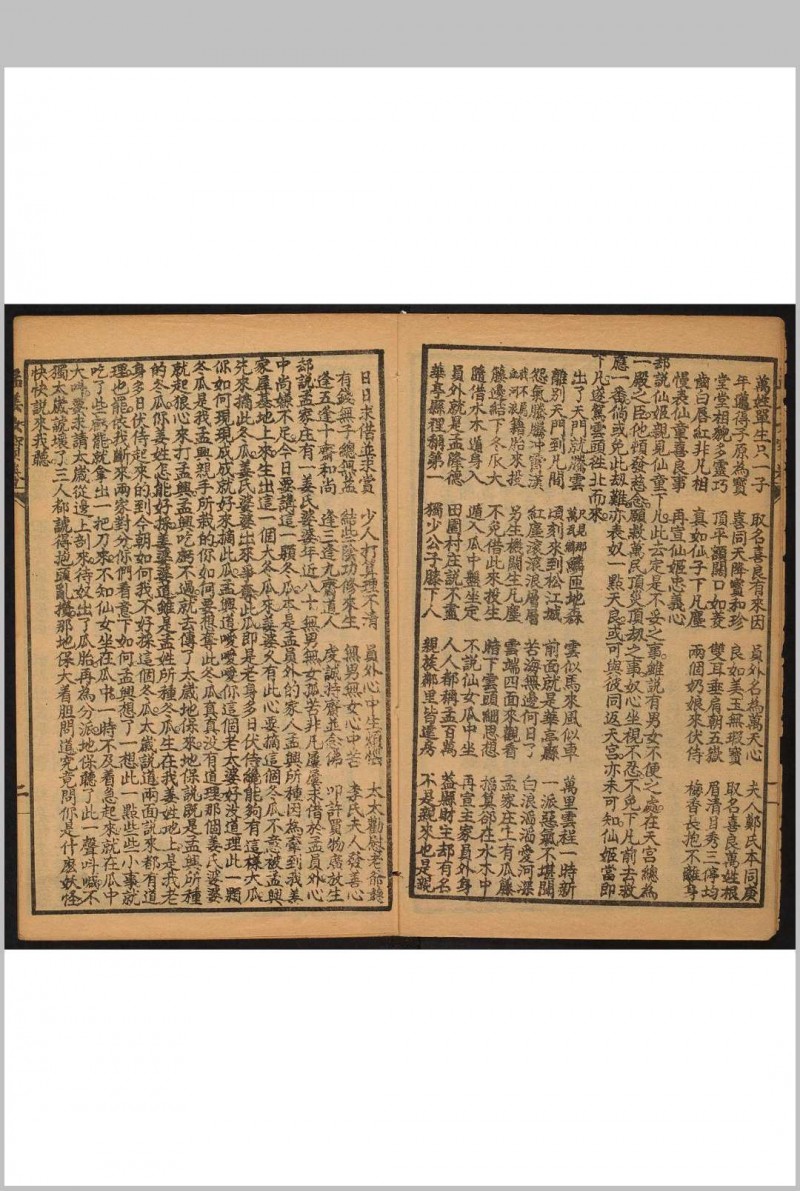 萬姓單生只一子　取名喜良有來因　員外名為萬天心　夫人鄭氏本同庚
年邁得子原為寶　喜同天降寶和珍　良如美玉無瑕寶　取名喜良萬姓根
堂堂相貌多靈巧　頂平額闊口如菱　雙耳垂肩朝五嶽　眉清目秀三停均
齒白唇紅非凡相　真如仙子下凡塵　兩個奶娘來伏侍　梅香長抱不離身
慢表仙童喜良事　再宣仙姬忠義心
却說仙姬親見仙童下凡此去定是不妥之事雖說有男女不便之處在天宮總為
一殿之臣他頻發慈念願救萬民頂災頂刼之事奴心坐視不忍不免下凡前去救
應一番倘或免此刼難亦表奴一點天良或可與彼同返天宮亦未可知仙姬當即
下凡遂駕雲頭往北而來
出了天門就騰雲　萬民鄉　尺見那　鱗匝地森　雲似馬來風似車　萬里雲程一時新
離別天門到凡間　頃刻來到松江城　前面就是華亭縣　一派惡氣不堪聞
怨氣騰騰冲霄漢　紅塵滾滾浪層層　苦海無邊何日了　白浪滔滔愛河深
我不尾　血河浪　籍胎來投　男生機關生凡塵　雲端四面來觀看　孟家庄上有瓜藤
藤邊結下冬瓜大　不免借此來投生　暗下雲頭細思想　稻算卻在水木中
隨借水木遁身入　遁入瓜中盤坐定　不說仙女瓜中坐　再宣主家員外身
員外就是孟隆德　田園村庄說不盡　人人都稱孟百萬　益縣財主却有名
華亭縣裡稱第一　獨少公子膝下人　親族鄰里皆逢房　不是親來也是親
日日求借並求賞　少人打算理不清　員外心中生煩惱　太太勸慰老爺聽
有錢無子總無益　結些陰功修來生　無男無女心中苦　李氏夫人發善心
逢五逢十齋和尚　逢三逢九齋道人　虔誠持齋並念佛　叩許買物廣放生
却說孟家庄有一姜氏婆婆年近八十無男無女孤苦非凡屢屢求借於孟員外心
中尚嫌不足今日要講這一顆冬瓜本是孟員外的家人孟興所種因為牽到我姜
家屋基地上來生出這一個大冬瓜來姜婆久有此心要摘這個冬瓜不意被孟興
先來摘此冬瓜姜氏婆婆出來爭奪此瓜即是老身多日伏侍纔能夠有這樣大瓜
你如何現現成成就好來摘此瓜孟興道噯噯噯你這個老太婆好没道理此一顆
冬瓜是我孟興親手所栽的你如何要想奪此冬瓜真真没有道理那個姜氏婆婆
就起狠心來打孟興孟興吃虧不過就去傳了太歲地保來地保說既是孟興所種
的冬瓜你姜姓怎能好採姜婆婆道雖是孟姓所種冬瓜生在我姜姓地上是我老
身多日伏侍起來的到今朝如何我不好採這個冬瓜太歲說道兩面說來都有道
理也罷依我斷來兩家對分你們看意下如何孟興想了一想此一點些些小事就
吃了些虧罷就拿出一把刀來不知仙女坐在瓜中一時不及着急起來就在瓜中
大叫要求請太歲從邊上剖來待奴出了瓜胎再為分派地保聽了此一聲叫喊不
獨太歲說壞了三人都諕得抱頭亂攛那地保大着胆問道究竟問你是什麼妖怪
快快說來我聽
二